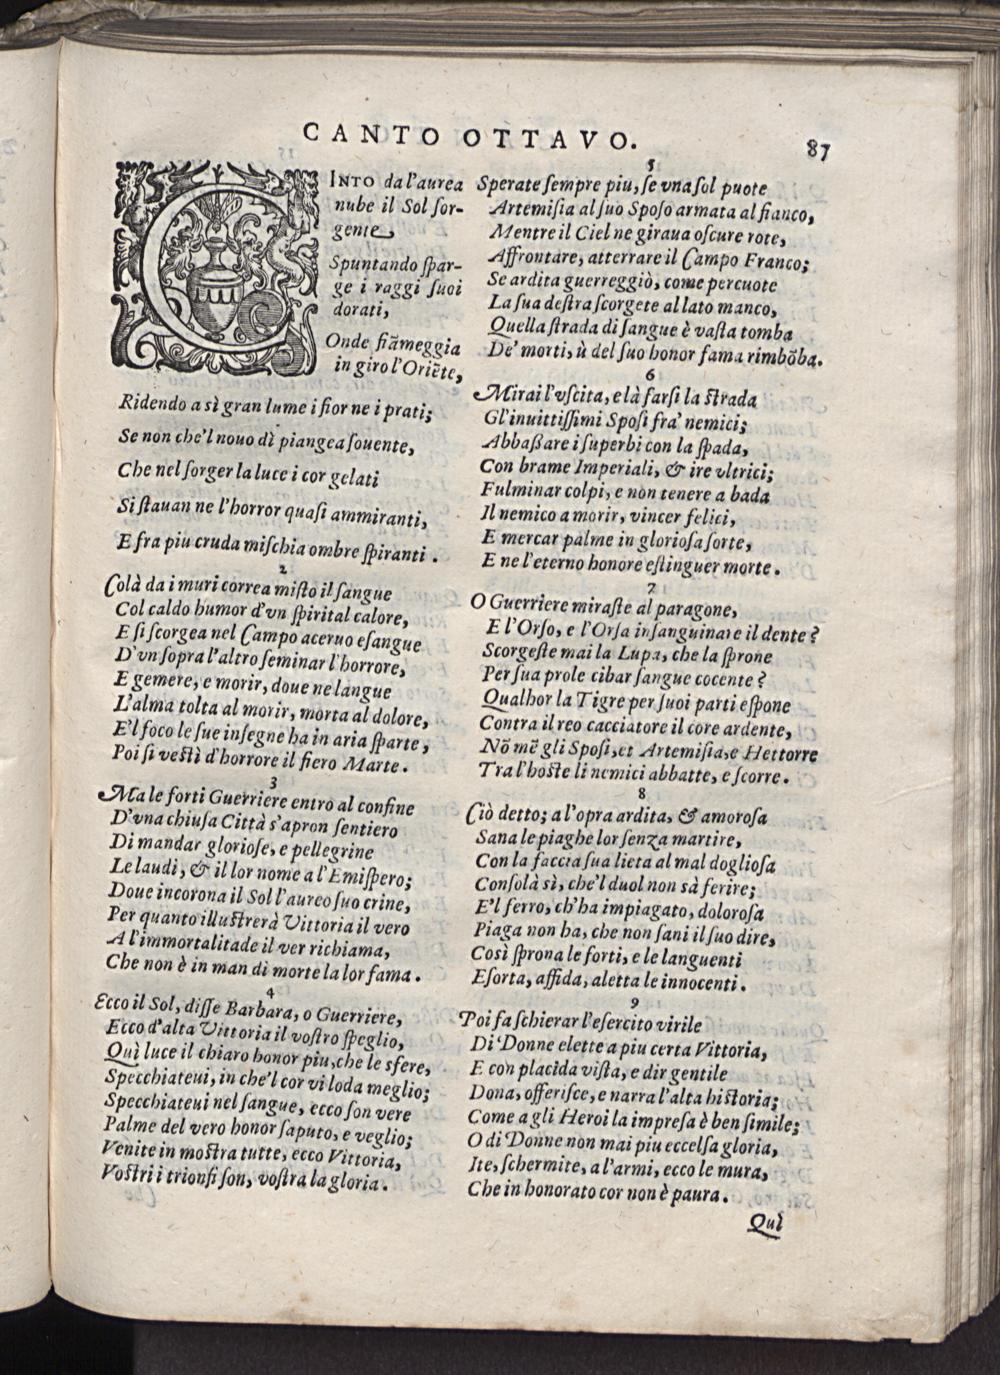 CANTO OTTAVO.
87
CINTO da l'aurea
nube il Sol ſor-
gente,
Spuntando ſpar-
ge i raggi ſuoi
dorati,
Onde fiãmeggia
in giro l'Oriẽte,
Ridendo a sì gran lume i fior ne i prati;
Se non che'l nouo dì piangea ſouente,
Che nel ſorger la luce i cor gelati
Si ſtauan ne l'horror quaſi ammiranti,
E fra piu cruda miſchia ombre ſpiranti.
2
Colà da i muri correa miſto il ſangue
Col caldo humor d'vn ſpirital calore,
E ſi ſcorgea nel Campo aceruo eſangue
D'vn ſopra l'altro ſeminar l'horrore,
E gemere, e morir, doue ne langue
L'alma tolta al morir, morta al dolore,
E'l foco le ſue inſegne ha in aria ſparte,
Poi ſi veſtì d'horrore il fiero Marte.
3
Ma le forti Guerriere entro al confine
D'vna chiuſa Città s'apron ſentiero
Di mandar glorioſe, e pellegrine
Le laudi, & il lor nome a l'Emiſpero;
Doue incorona il Sol l'aureo ſuo crine,
Per quanto illuſtrerà Vittoria il vero
A l'immortalitade il ver richiama,
Che non è in man di morte la lor fama.
4
Ecco il Sol, diſſe Barbara, o Guerriere,
Ecco d'alta Vittoria il voſtro ſpeglio,
Quì luce il chiaro honor piu, che le ſfere,
Specchiateui, in che'l cor vi loda meglio;
Specchiateui nel ſangue, ecco ſon vere
Palme del vero honor ſaputo, e veglio;
Venite in moſtra tutte, ecco Vittoria,
Voſtri i trionfi ſon, voſtra la gloria.
5
Sperate ſempre piu, ſe vna ſol puote
Artemiſia al ſuo Spoſo armata al fianco,
Mentre il Ciel ne giraua oſcure rote,
Affrontare, atterrare il Campo Franco;
Se ardita guerreggiò, come percuote
La ſua deſtra ſcorgete al lato manco,
Quella ſtrada di ſangue è vaſta tomba
De' morti, ù del ſuo honor fama rimbõba.
6
Mirai l'vſcita, e là farſi la ſtrada
Gl'inuittiſſimi Spoſi fra' nemici;
Abbaßare i ſuperbi con la ſpada,
Con brame Imperiali, & ire vltrici;
Fulminar colpi, e non tenere a bada
Il nemico a morir, vincer felici,
E mercar palme in glorioſa ſorte,
E ne l'eterno honore eſtinguer morte.
7
O Guerriere miraſte al paragone,
E l'Orſo, e l'Orſa inſanguinare il dente?
Scorgeſte mai la Lupa, che la ſprone
Per ſua prole cibar ſangue cocente?
Qualhor la Tigre per ſuoi parti eſpone
Contra il reo cacciatore il core ardente,
Nõ mẽ gli Spoſi, et Artemiſia, e Hettorre
Tra l'hoſte li nemici abbatte, e ſcorre.
8
Ciò detto; a l'opra ardita, & amoroſa
Sana le piaghe lor ſenza martire,
Con la faccia ſua lieta al mal doglioſa
Conſola sì, che'l duol non sà ferire;
E'l ferro, ch'ha impiagato, doloroſa
Piaga non ha, che non ſani il ſuo dire,
Così ſprona le forti, e le languenti
Eſorta, affida, aletta le innocenti.
9
Poi fa ſchierar l'eſercito virile
Di Donne elette a piu certa Vittoria,
E con placida viſta, e dir gentile
Dona, offeriſce, e narra l'alta hiſtoria;
Come a gli Heroi la impreſa è ben ſimile;
O di Donne non mai piu eccelſa gloria,
Ite, ſchermite, a l'armi, ecco le mura,
Che in honorato cor non è paura.
Quì